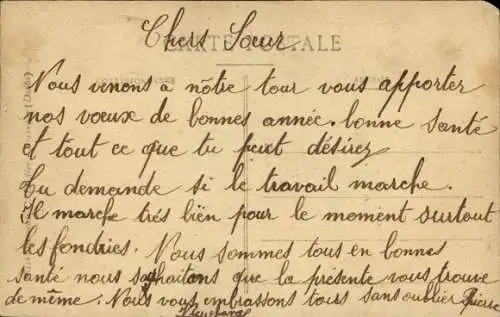 Chers Soeur
CARTE POSTALE
Nous venons a nôtre tour vous apporter
nos voeux de bonnes année. bonne santé
et tout ce que tu peut désirez
Tu demande si le travail marche.
Il marche très bien pour le moment surtout
les fondries. Nous sommes tous en bonnes
santé nous souhaitons que la présente vous trouve
de même. Nous vous embrassons tours sans oublier Pierre